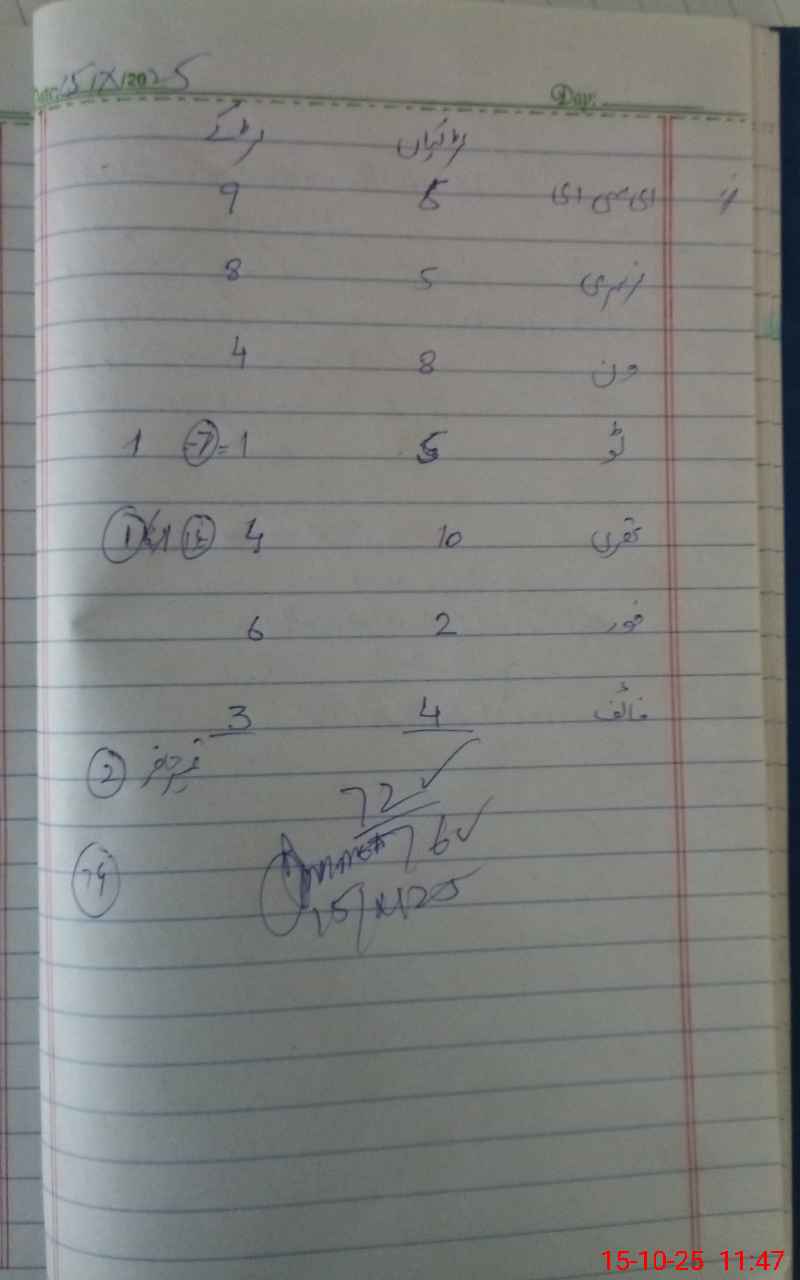 Date: 15/X/2025 Day:
لڑکیاں لڑکے
ای سی ای 5 9
نرسری 5 8
ون 8 4
ٹو 5 1
تھری 10 4
فور 2 6
فائف 4 3
ٹیچرز 2
72 ✓
76 ✓
15/X/25
15-10-25 11:47